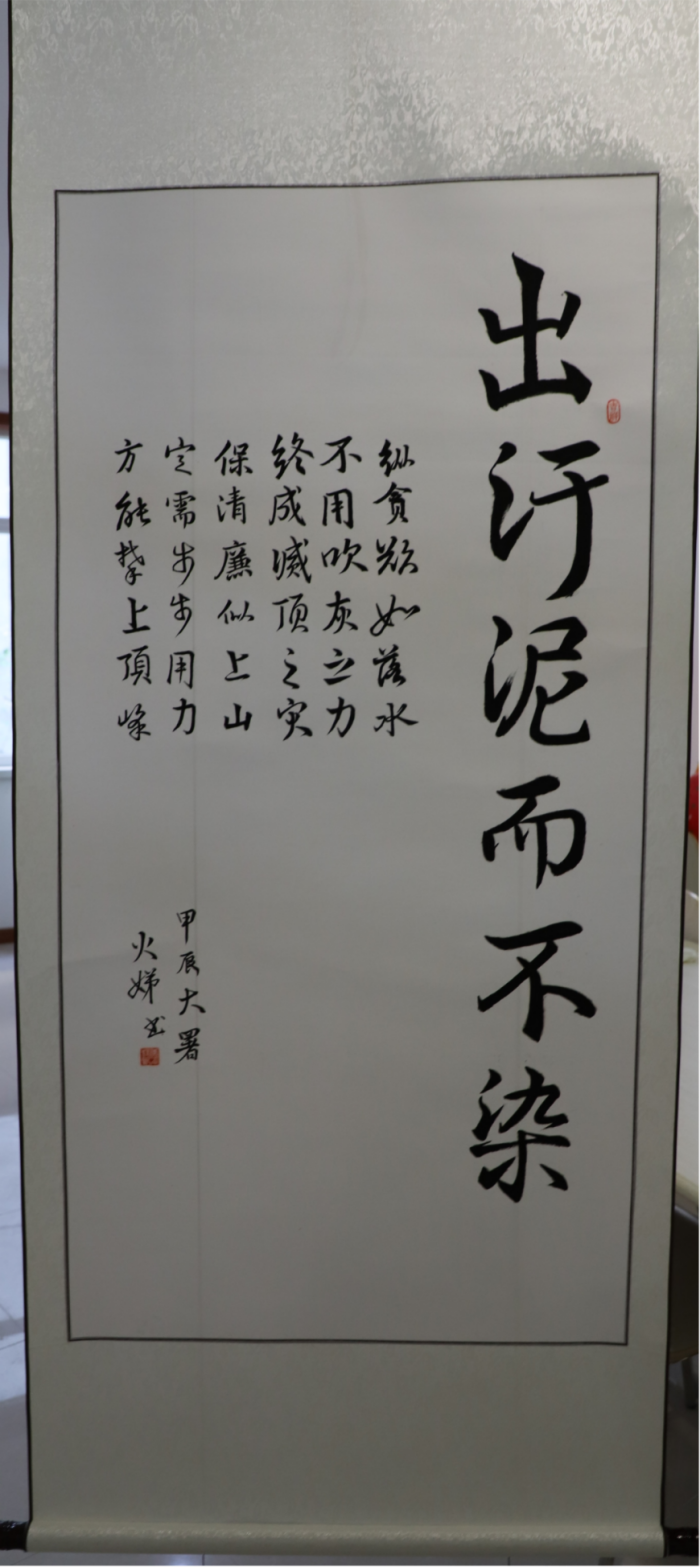 出汙泥而不染
纵贪欲如落水
不用吹灰之力
终成灭顶之灾
保清廉似上山
定需步步用力
方能攀上頂峰
甲辰大署
火娣书